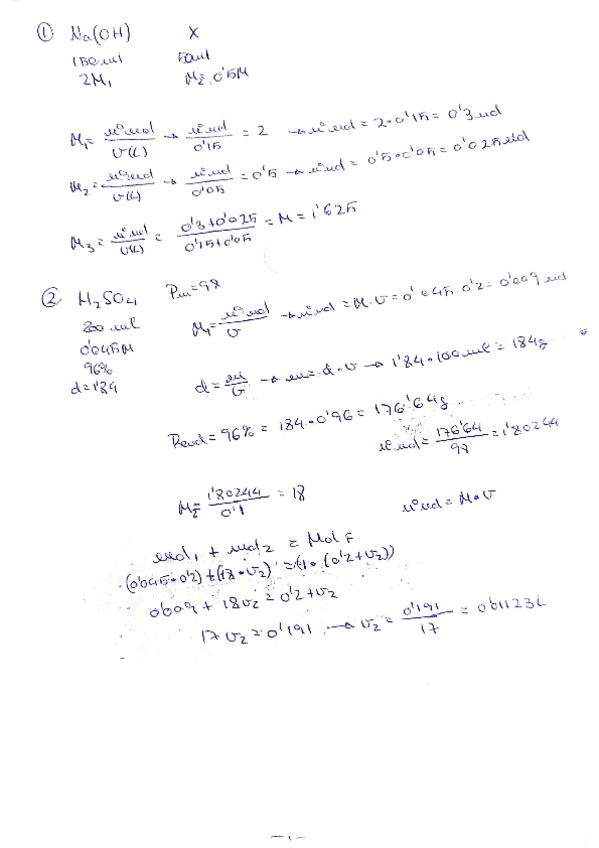 ① Na(OH) X
150ml 50ml
2M₁ M₂=0'5M
M₁ = nº mol / V(L) → nº mol / 0'15 = 2 → nº mol = 2·0'15 = 0'3 mol
M₂ = nº mol / V(L) → nº mol / 0'05 = 0'5 → nº mol = 0'5·0'05 = 0'025 mol
M₃ = nº mol / V(L) = 0'3+0'025 / 0'15+0'05 = M = 1'625
② H₂SO₄ Pm=98
200 ml M₁ = nº mol / V → nº mol = M·V = 0'045·0'2 = 0'009 mol
0'045M
96%
d=1'84 d = m / V → m = d·V → 1'84·100ml = 184g
Rend = 96% = 184·0'96 = 176'64g
nº mol = 176'64 / 98 = 1'80244
M₂ = 1'80244 / 0'1 = 18 nº mol = M·V
mol₁ + mol₂ = Mol F
(0'045·0'2)+(18·V₂) = (1·(0'2+V₂))
0'009 + 18V₂ = 0'2+V₂
17V₂ = 0'191 → V₂ = 0'191 / 17 = 0'01123L
- 1 -